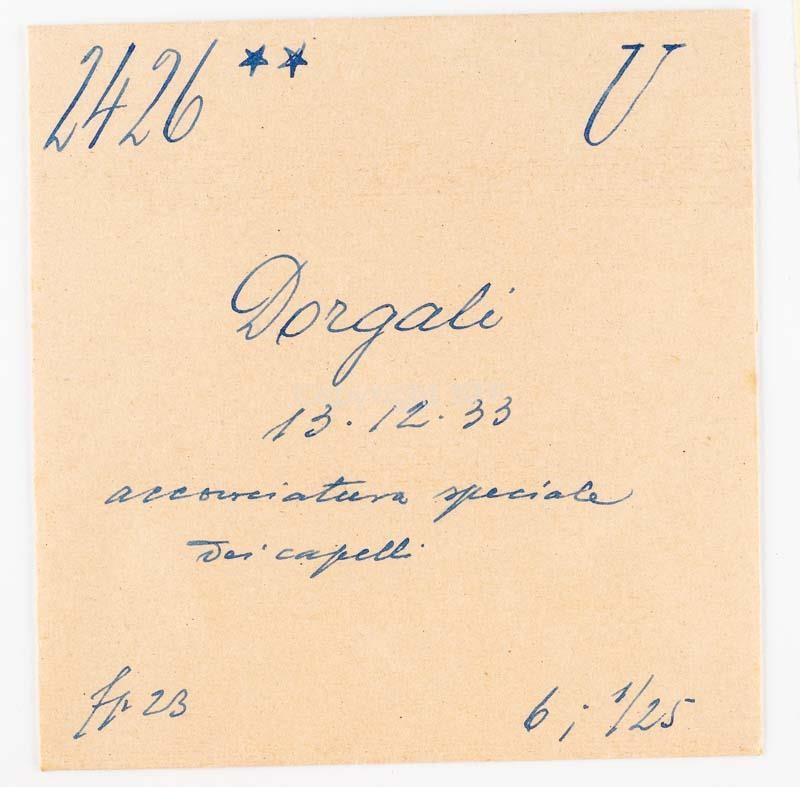 2426 ** U
Dorgali
13.12.33
acconciatura speciale
dei capelli
fp 23 6; 1/25